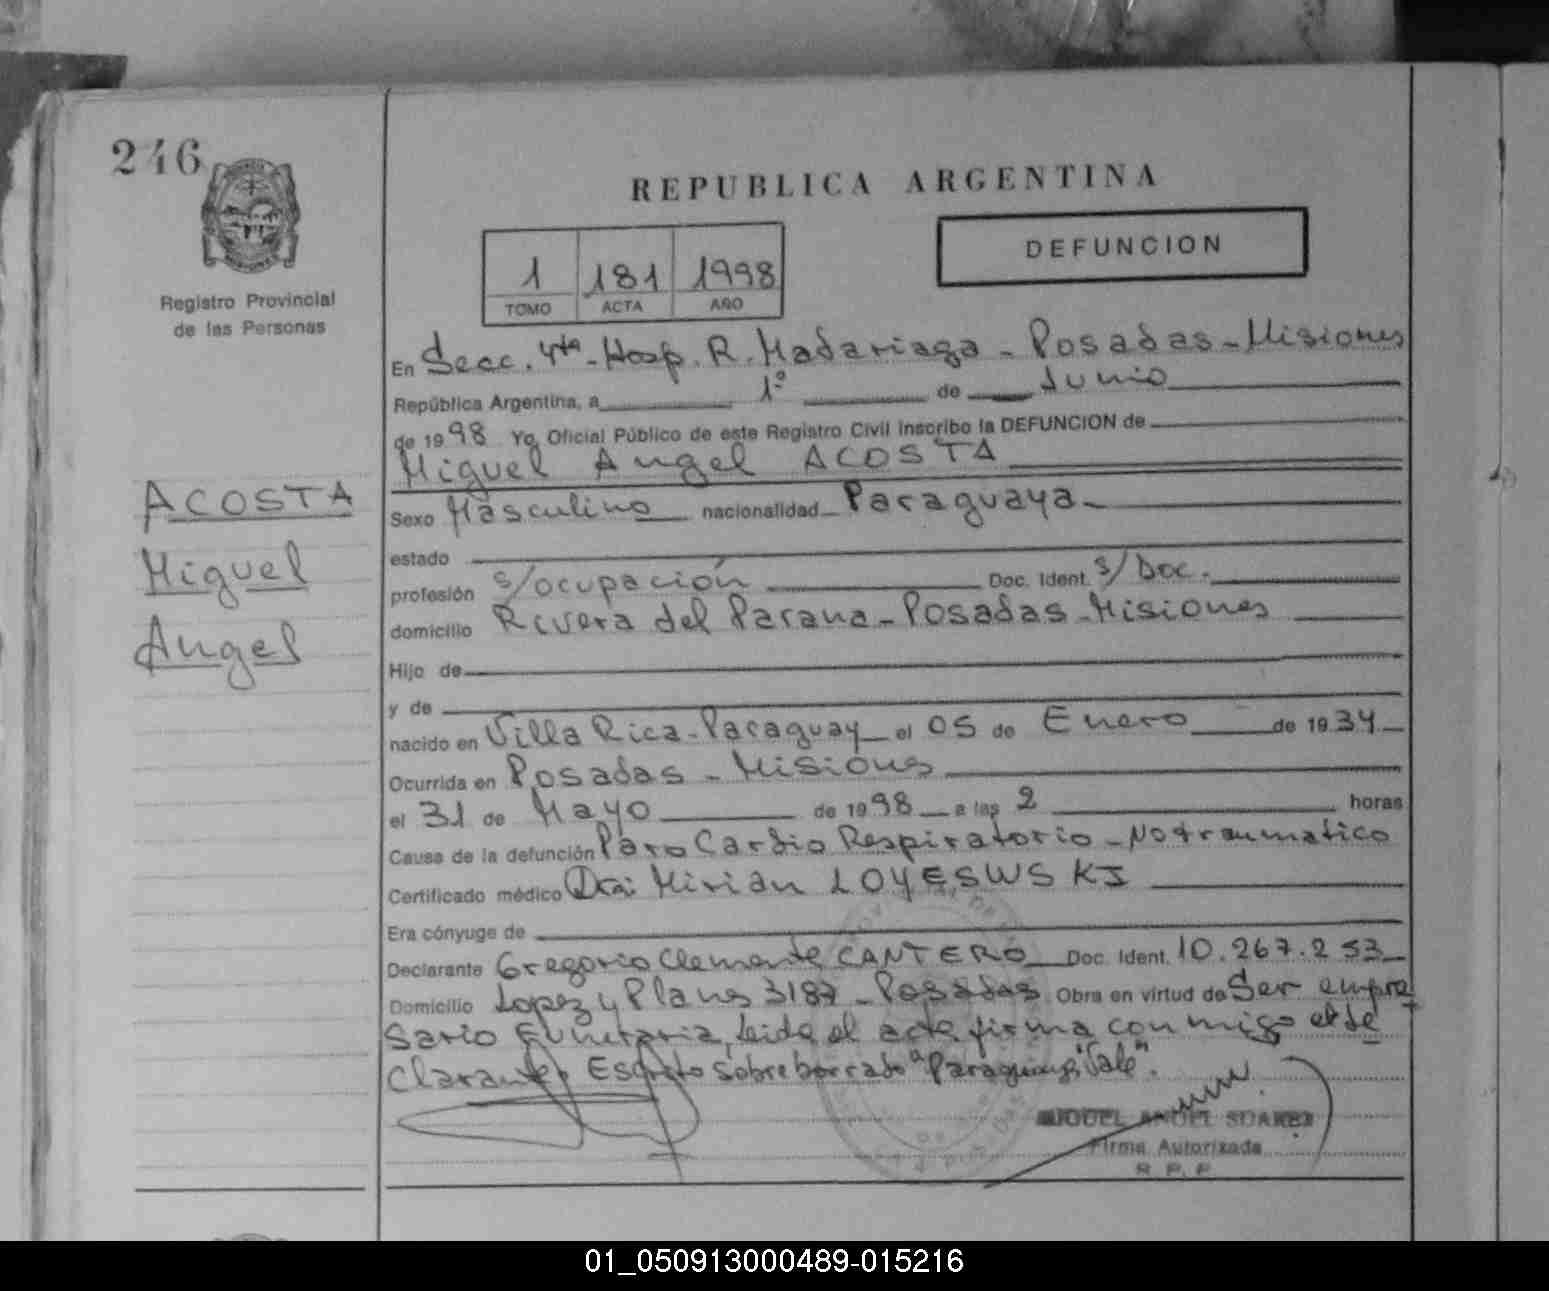 246
REPUBLICA ARGENTINA
DEFUNCION
1 181 1998
TOMO ACTA AÑO
Registro Provincial
de las Personas
En Secc. 4ta - Hosp. R. Madariaga - Posadas - Misiones
República Argentina, a 1º de Junio
de 1998 Yo Oficial Público de este Registro Civil inscribo la DEFUNCION de
Miguel Angel ACOSTA
ACOSTA
Miguel
Angel
Sexo Masculino nacionalidad Paraguaya
estado
profesión s/ocupación Doc. Ident. s/Doc.
domicilio Rivera del Parana - Posadas - Misiones
Hijo de
y de
nacido en Villa Rica - Paraguay el 05 de Enero de 1934
Ocurrida en Posadas - Misiones
el 31 de Mayo de 1998 a las 2 horas
Causa de la defunción Paro Cardio Respiratorio - No traumatico
Certificado médico Dra: Mirian LOYESWSKI
Era cónyuge de
Declarante Gregorio Clemente CANTERO Doc. Ident. 10.267.253
Domicilio Lopez y Planes 3187 - Posadas Obra en virtud de Ser empre
sario Funeraria, leida el acta, firma conmigo el de
clarante. Escrito sobre borrado "Paraguay, Vale".
MIGUEL ANGEL SUAREZ
Firma Autorizada
R. P. P.
01_050913000489-015216